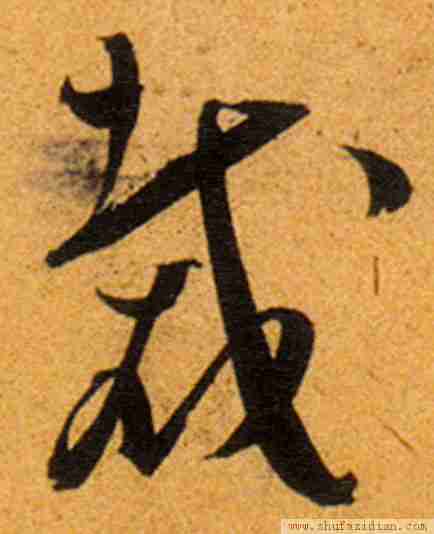 裁
www.shufazidian.com